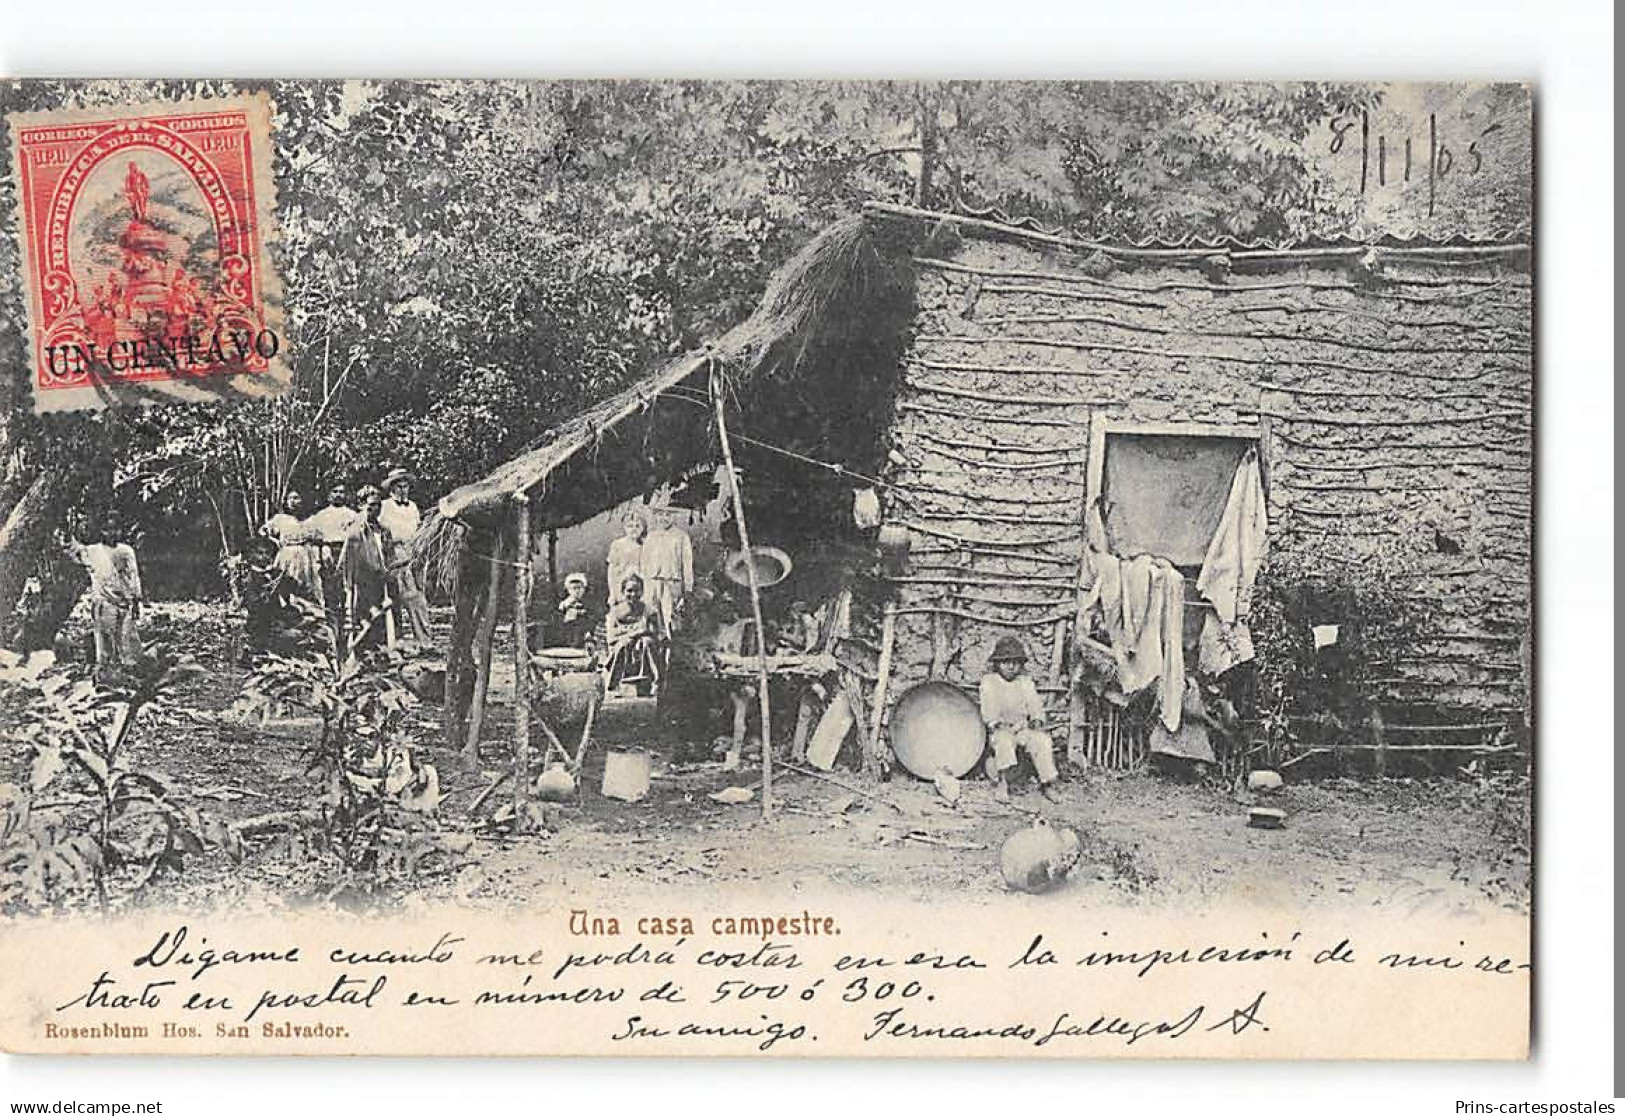 CORREOS CORREOS
U.P.U. U.P.U.
REPUBLICA DE EL SALVADOR
UN CENTAVO
8/11/05
Una casa campestre.
Digame cuanto me podrá costar en esa la impresión de mi re-
trato en postal en número de 500 ó 300.
Su amigo. Fernando Gallegos A.
Rosenblum Hos. San Salvador.
delcampe.net
Prins-cartespostales